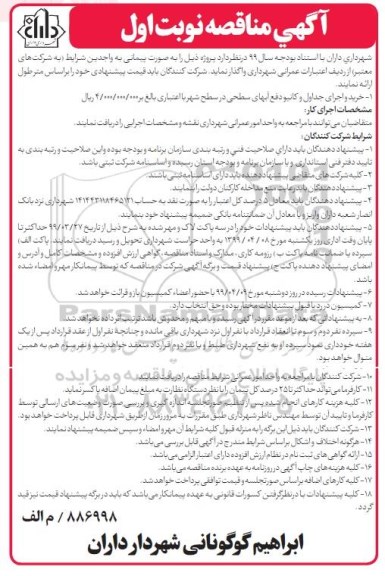 آگهي مناقصه نوبت اول
شهرداری داران با استناد بودجه سال ۹۹ در نظر دارد پروژه ذیل را به صورت پیمانی به واجدین شرایط (به شرکت های
معتبر) از ردیف اعتبارات عمرانی شهرداری واگذار نماید. شرکت کنندگان باید قیمت پیشنهادی خود را بر اساس متر طول
ارائه نمایند.
۱- خرید و اجرای جداول و کانیو دفع آبهای سطحی در سطح شهر با اعتباری بالغ بر ۴/۰۰۰/۰۰۰/۰۰۰ ریال
مشخصات اجرای کار:
متقاضیان می توانند با مراجعه به واحد امور عمرانی شهرداری نقشه و مشخصات اجرایی را دریافت نمایند.
شرایط شرکت کنندگان:
۱- پیشنهاد دهندگان باید دارای صلاحیت فنی و رتبه بندی سازمان برنامه و بودجه بوده و این صلاحیت و رتبه بندی به
تایید دفتر فنی استانداری و یا سازمان برنامه و بودجه استان رسیده و اساسنامه شرکت ثبتی باشد.
۲- کلیه شرکت های متقاضی پیشنهاد دهنده باید دارای اساسنامه ثبتی باشند.
۳- پیشنهاد دهندگان باید رعایت منع مداخله کارکنان دولت را بنمایند.
۴- پیشنهاد دهندگان باید معادل ۵ درصد کل اعتبار را به صورت نقد به حساب شهرداری نزد بانک
انصار شعبه داران واریز و یا معادل آن ضمانتنامه بانکی ضمیمه پیشنهاد خود بنمایند.
۵- پیشنهاد دهندگان باید پیشنهادات خود را در سه پاکت لاک و مهر شده به شرح ذیل از تاریخ ۹۹/۰۳/۲۷ حداکثر تا
پایان وقت اداری روز یکشنبه مورخ ۱۳۹۹/۰۴/۰۸ به واحد حراست شهرداری تحویل و رسید دریافت نمایند. پاکت الف:
سپرده یا ضمانت نامه پاکت ب: رزومه کاری، مدارک و اسناد مناقصه، گواهی ارزش افزوده و مشخصات کامل و آدرس و
امضای پیشنهاد دهنده پاکت ج: پیشنهاد قیمت و برگه آگهی شرکت در مناقصه که توسط پیمانکار مهر و امضاء شده
باشد.
۶- پیشنهادات رسیده در روز دوشنبه مورخ ۹۹/۰۴/۰۹ با حضور اعضاء کمیسیون باز و قرائت خواهد شد.
۷- کمیسیون در رد یا قبول پیشنهادات مختار بوده و حق انتخاب دارد.
۸- به پیشنهاداتی که بعد از موعد مقرر در آگهی رسیده و یا مبهم و مخدوش باشد ترتیب اثر داده نخواهد شد.
۹- سپرده نفر دوم و سوم تا انعقاد قرارداد با نفر اول نزد شهرداری باقی مانده و چنانچه نفر اول از عقد قرارداد پس از یک
هفته خودداری نمود سپرده او به نفع شهرداری ضبط و با نفر دوم قرارداد منعقد خواهد شد و نفر سوم هم به همین
منوال خواهد بود.
۱۰- شرکت کنندگان با مراجعه به واحد امور عمرانی شرایط مناقصه را دریافت نمایند.
۱۱- کارفرما می تواند حداکثر تا ۲۵ درصد کل پیمان را با نظر دستگاه نظارت به مبلغ پیمان اضافه یا کسر نماید.
کارفرما و تایید آن توسط مهندس ناظر شهرداری طبق مقررات به مرور زمان از طریق شهرداری قابل پرداخت خواهد بود.
۱۳- شرکت کنندگان باید ذیل این برگه را به منزله قبول کلیه شرایط آن مهر و امضاء و سپس ضمیمه پیشنهاد نمایند.
۱۴- هرگونه اختلاف و اشکال بر اساس شرایط مندرج در آگهی قابل بررسی می باشد.
۱۵- ارائه گواهی های ثبت نام در نظام ارزش افزوده دارای اعتبار الزامی می باشد.
۱۶- کلیه هزینه های چاپ آگهی در روزنامه به عهده برنده مناقصه می باشد.
۱۷- کلیه کارهای اضافه بر اساس صورتجلسه و قیمت توافقی پرداخت خواهد شد.
۱۸- کلیه پیشنهادات با در نظر گرفتن کسورات قانونی به عهده پیمانکار می باشد که باید در برگه پیشنهاد قیمت نیز قید
گردد.
۸۸۶۹۹۸ / م الف
ابراهیم گوگونانی شهردار داران